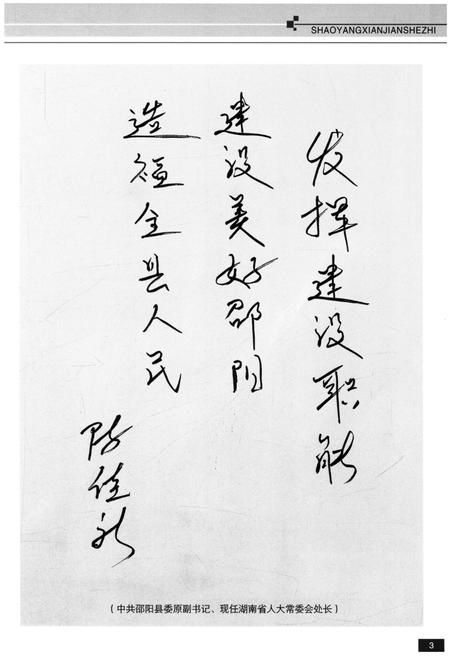 SHAOYANGXIANJIANSHEZHI
发挥建设职能
建设美好邵阳
造福全县人民
陈佳新
(中共邵阳县委原副书记、现任湖南省人大常委会处长)
3